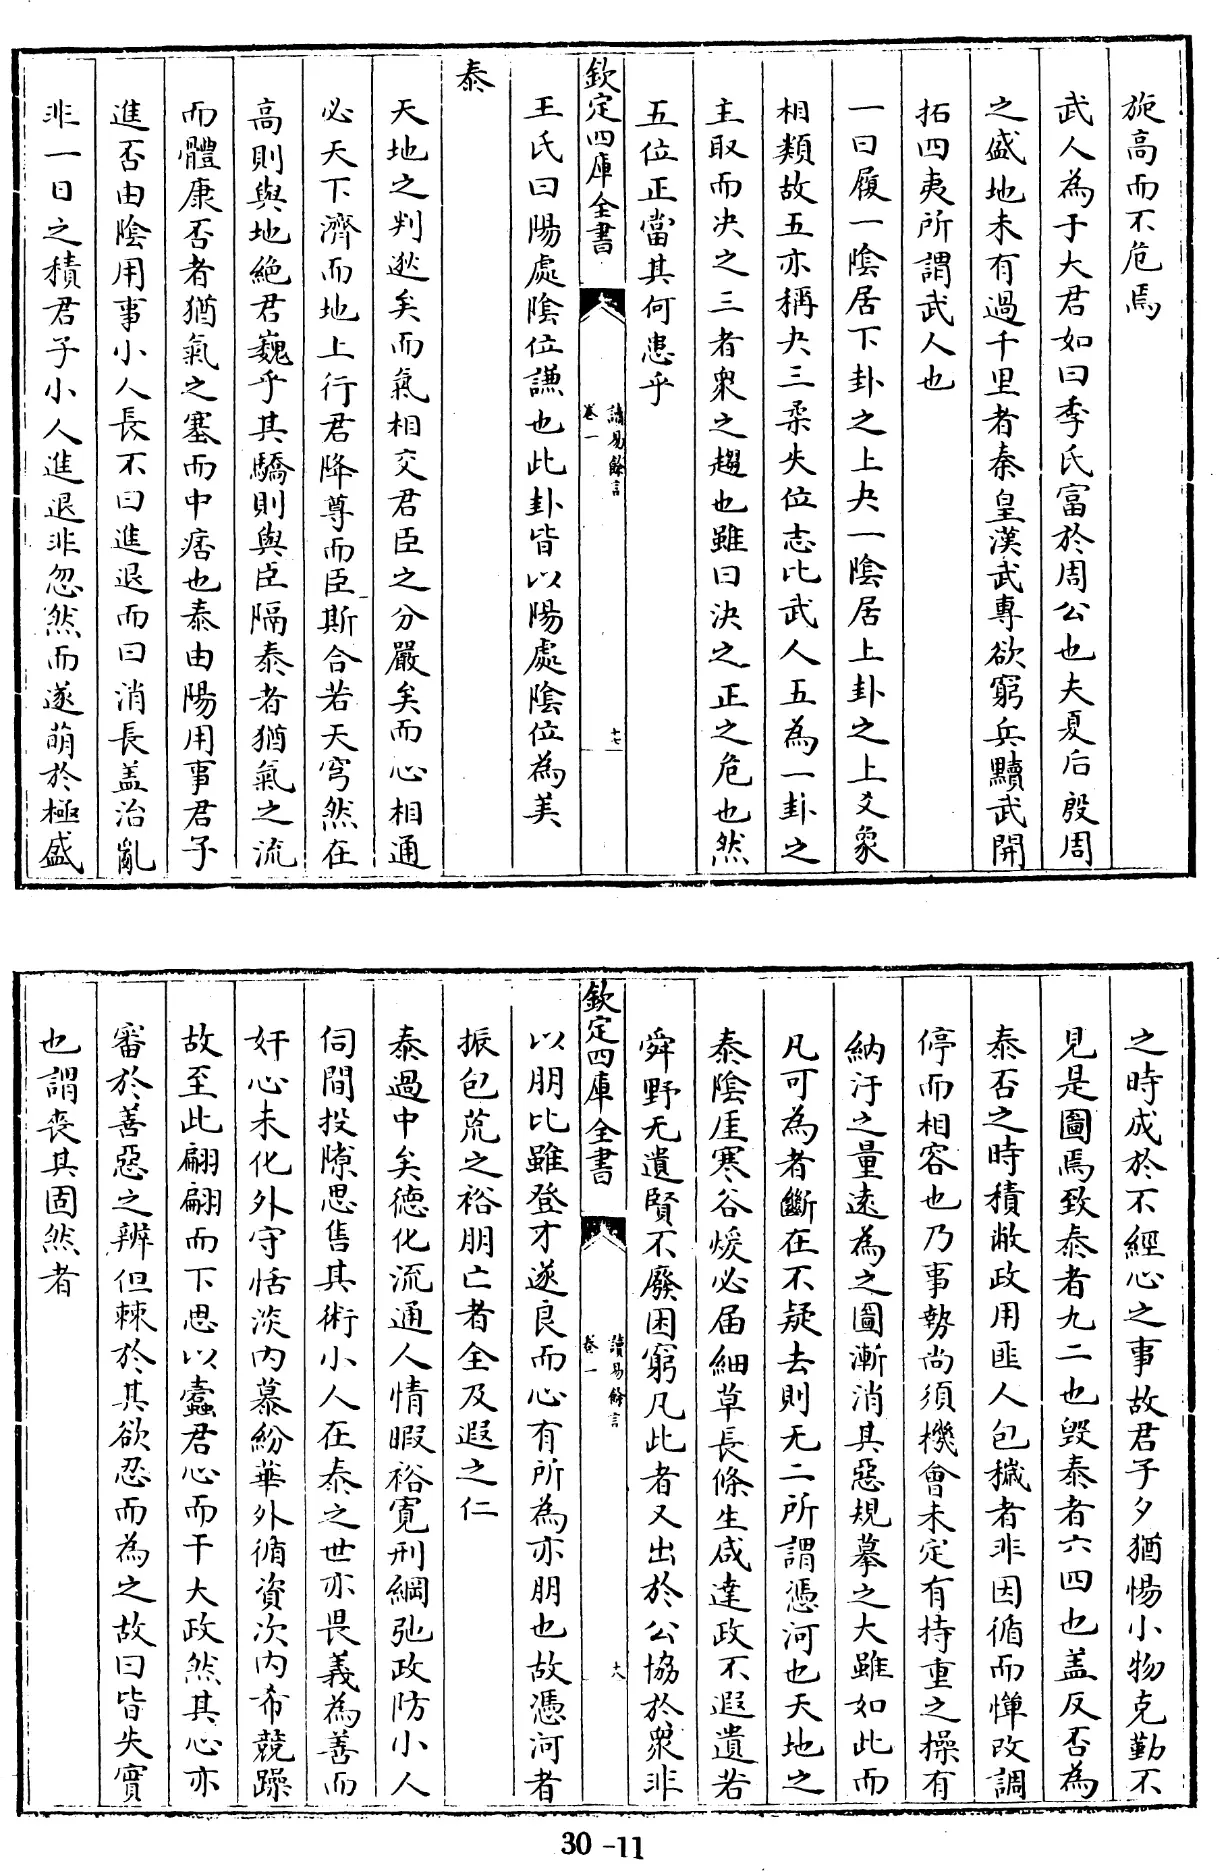 旎高而不危焉
武人為于大君如曰季氏富於周公也夫夏后殷周
之盛地未有過千里者秦皇漢武專欲窮兵黷武開
拓四夷所謂武人也
一曰履一陰居下卦之上夬一陰居上卦之上爻象
相類故五亦稱夬三柔失位志比武人五為一卦之
主取而决之三者衆之趨也雖曰决之正之危也然
五位正當其何患乎
欽定四庫全書
讀易餘言
卷一
十七
王氏曰陽處陰位謙也此卦皆以陽處陰位為美
泰
天地之判逖矣而氣相交君臣之分嚴矣而心相通
必天下濟而地上行君降尊而臣斯合若天穹然在
高則與地絶君巍乎其驕則與臣隔泰者猶氣之流
而體康否者猶氣之塞而中痞也泰由陽用事君子
進否由陰用事小人長不曰進退而曰消長盖治亂
非一日之積君子小人進退非忽然而遂萌於極盛
之時成於不經心之事故君子夕猶惕小物克勤不
見是圖焉致泰者九二也毀泰者六四也盖反否為
泰否之時積敝政用匪人包穢者非因循而憚改調
停而相容也乃事勢尚須機會未定有持重之操有
納汙之量遠為之圖漸消其惡規摹之大雖如此而
凡可為者斷在不疑去則无二所謂憑河也天地之
泰陰厓寒谷煖必届細草長條生咸達政不遐遺若
舜野无遺賢不廢困窮凡此者又出於公協於衆非
欽定四庫全書
讀易餘言
卷一
十八
以朋比雖登才遂良而心有所為亦朋也故憑河者
振包荒之裕朋亡者全及遐之仁
泰過中矣德化流通人情暇裕寛刑綱弛政防小人
伺間投隙思售其術小人在泰之世亦畏義為善而
奸心未化外守恬淡内慕紛華外循資次内希競躁
故至此翩翩而下思以蠹君心而干大政然其心亦
審於善惡之辨但棘於其欲忍而為之故曰皆失實
也謂喪其固然者
30-11